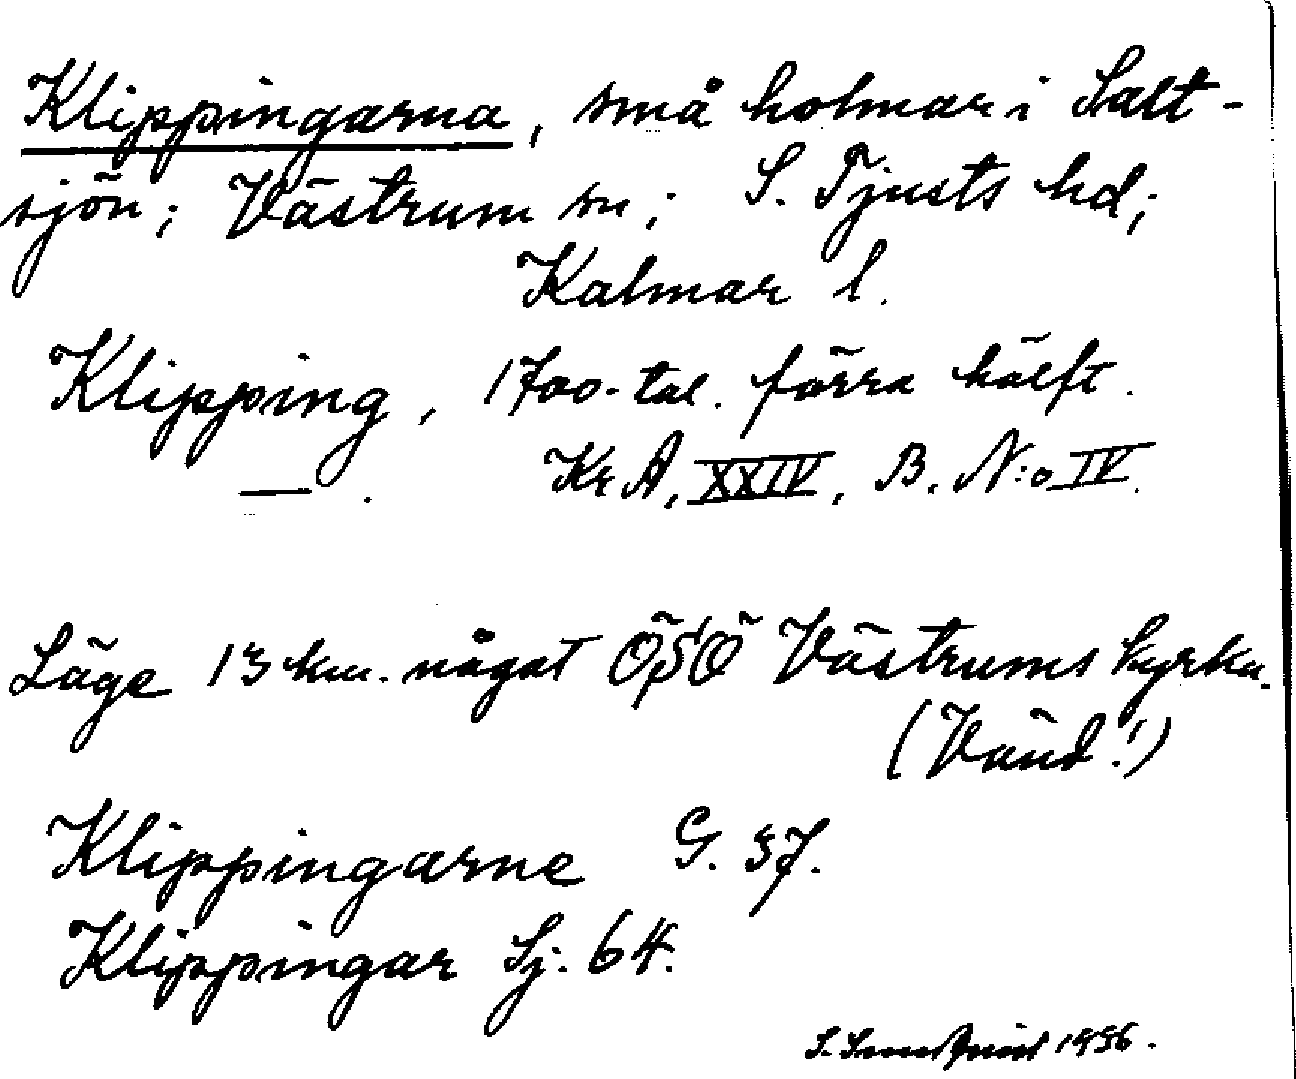 Klippingarna, små holmar i Salt-
sjön; Västrum sn; S. Tjusts hd;
Kalmar l.
Klipping, 1700-tal. förra hälft.
— . Kr A, XXIV, B. N:o IV.
Läge 13 km. något ÖSÖ Västrums kyrka.
(Vänd!)
Klippingarne G. 37.
Klippingar Sj. 64.
S. 1936.